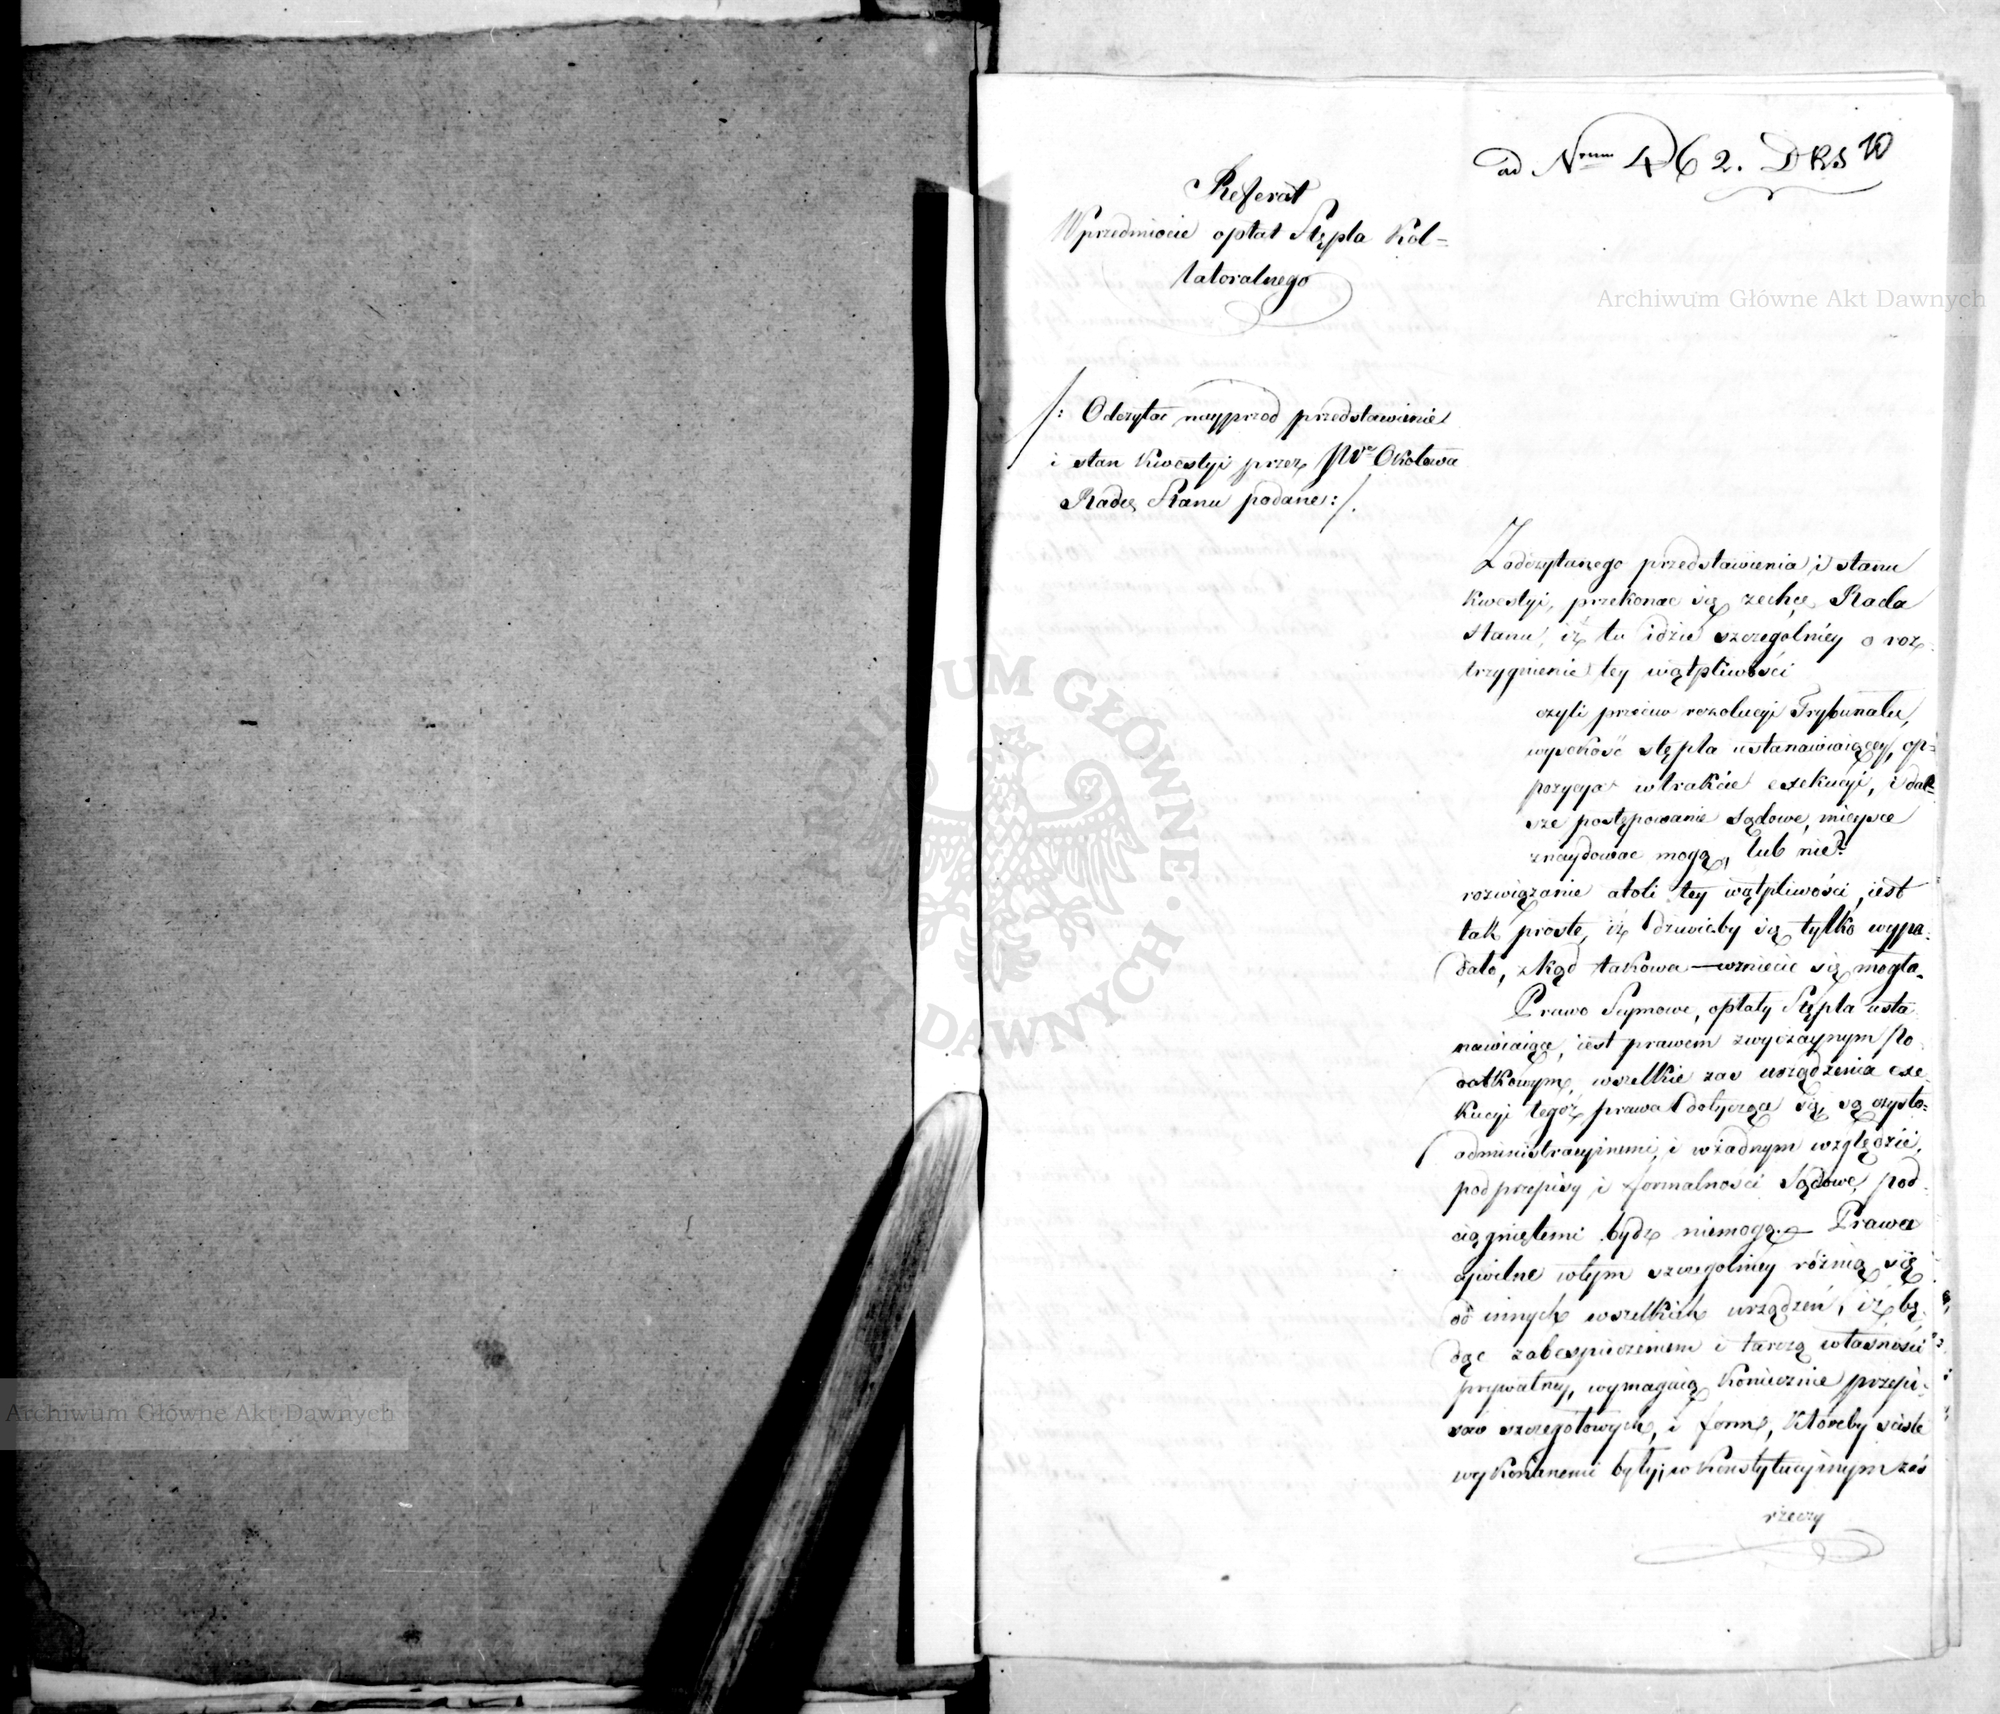 ad Nrum 462. DRS
10
Referat
W przedmiocie opłat Stępla Kol=
lateralnego
/: Odczytać nayprzod przedstawienie
i stan kwestyi przez JW Okołowa
Radcę Stanu podane :/.
Z odczytanego przedstawienia i stanu
kwestyi, przekonac się zechce Rada
Stanu, iż tu idzie szczegolniey o roz-
trzygnienie tey wątpliwości
czyli przeciw rezolucyi Trybunału,
wysokość stępla ustanawiaiącey, op=
pozycya w trakcie exekucyi, i dal=
sze postępowanie sądowe, mieysce
znaydowac mogą, lub nie?
rozwiązanie atoli tey wątpliwości, iest
tak proste, iż dziwicby się tylko wypa-
dało, zkąd takowa wzniecic się mogła.
Prawo Seymowe, opłaty Stępla usta-
nawiaiące, iest prawem zwyczaynym Po-
datkowym, wszelkie zas urządzenia exe-
kucyi tegoż prawa dotyczące się, są czysto=
administracyinemi, i w żadnym względzie,
pod przepisy i formalności Sądowe, pod-
ciągniętemi bydz niemogą. — Prawa
cywilne w tym szczegolniey różnią się
od innych wszelkich urządzeń, iż bę-
dąc zabespieczeniem i tarczą własności
prywatney, wymagaią koniecznie przepi-
sow szczegołowych, i form, któreby scisle
wykonanemi były; w Konstytucyinym zaś
rzeczy
Archiwum Główne Akt Dawnych
Archiwum Główne Akt Dawnych
ARCHIWUM GŁÓWNE AKT DAWNYCH